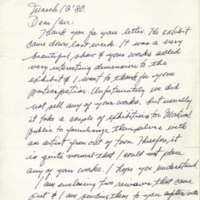 March 13 '80.
Dear Ian:
Thank you for your letter. The exhibit
came down last week. It was a very
beautiful show & your works added
very interesting dimension to the
exhibit & I want to thank for your
participation. Unfortunately we did
not sell any of your works, but usually
it take a couple of exhibitions for
public to familiarize themselves with
an artist from out of town. Therefore, it
is quite normal that I could not place
any of your works. I hope you understand.
I am enclosing two reviews that came
out & I am sending them to your